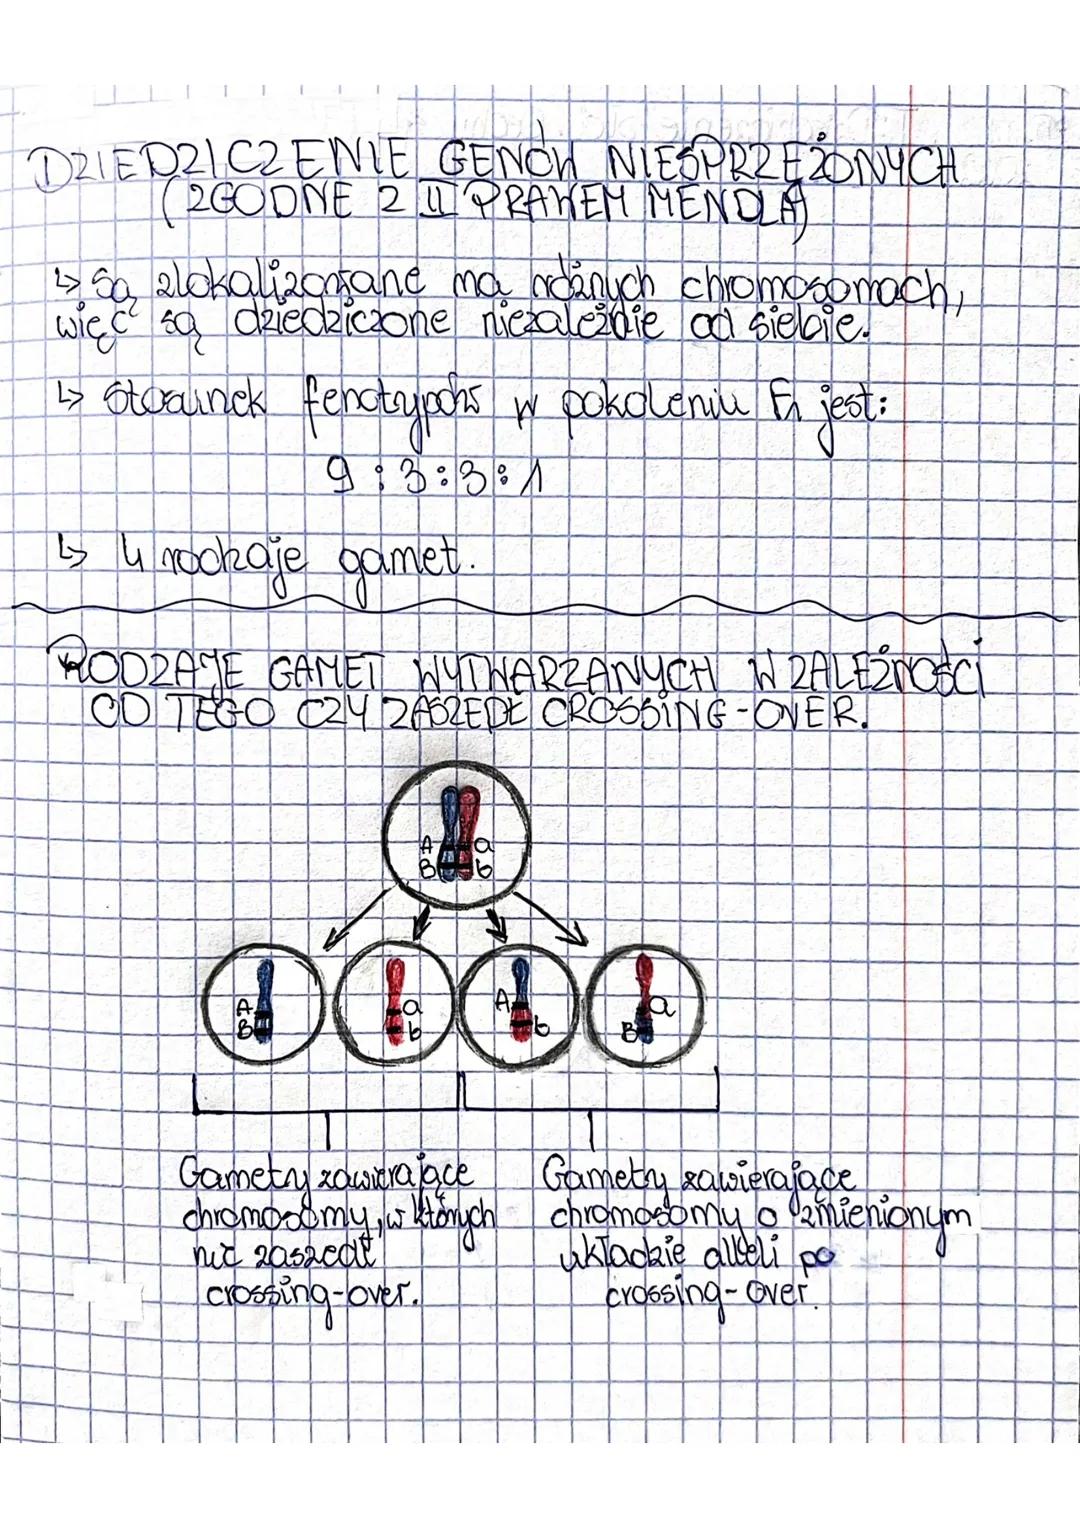 DZIEDZICZENIE GENÓW NIESPRZĘŻONYCH
(ZGODNE Z II PRAWEM MENDLA)
↳ Są zlokalizowane na różnych chromosomach,
więc są dziedziczone niezależnie od siebie.
↳ Stosunek fenotypów w pokoleniu F₁ jest:
9 : 3 : 3 : 1
↳ 4 rodzaje gamet.
RODZAJE GAMET WYTWARZANYCH W ZALEŻNOŚCI
OD TEGO CZY ZASZEDŁ CROSSING-OVER.
A a
B b
A a A a
B b b B
Gamety zawierające Gamety zawierające
chromosomy, w których chromosomy o zmienionym
nie zaszedł układzie alleli po
crossing-over. crossing-over.